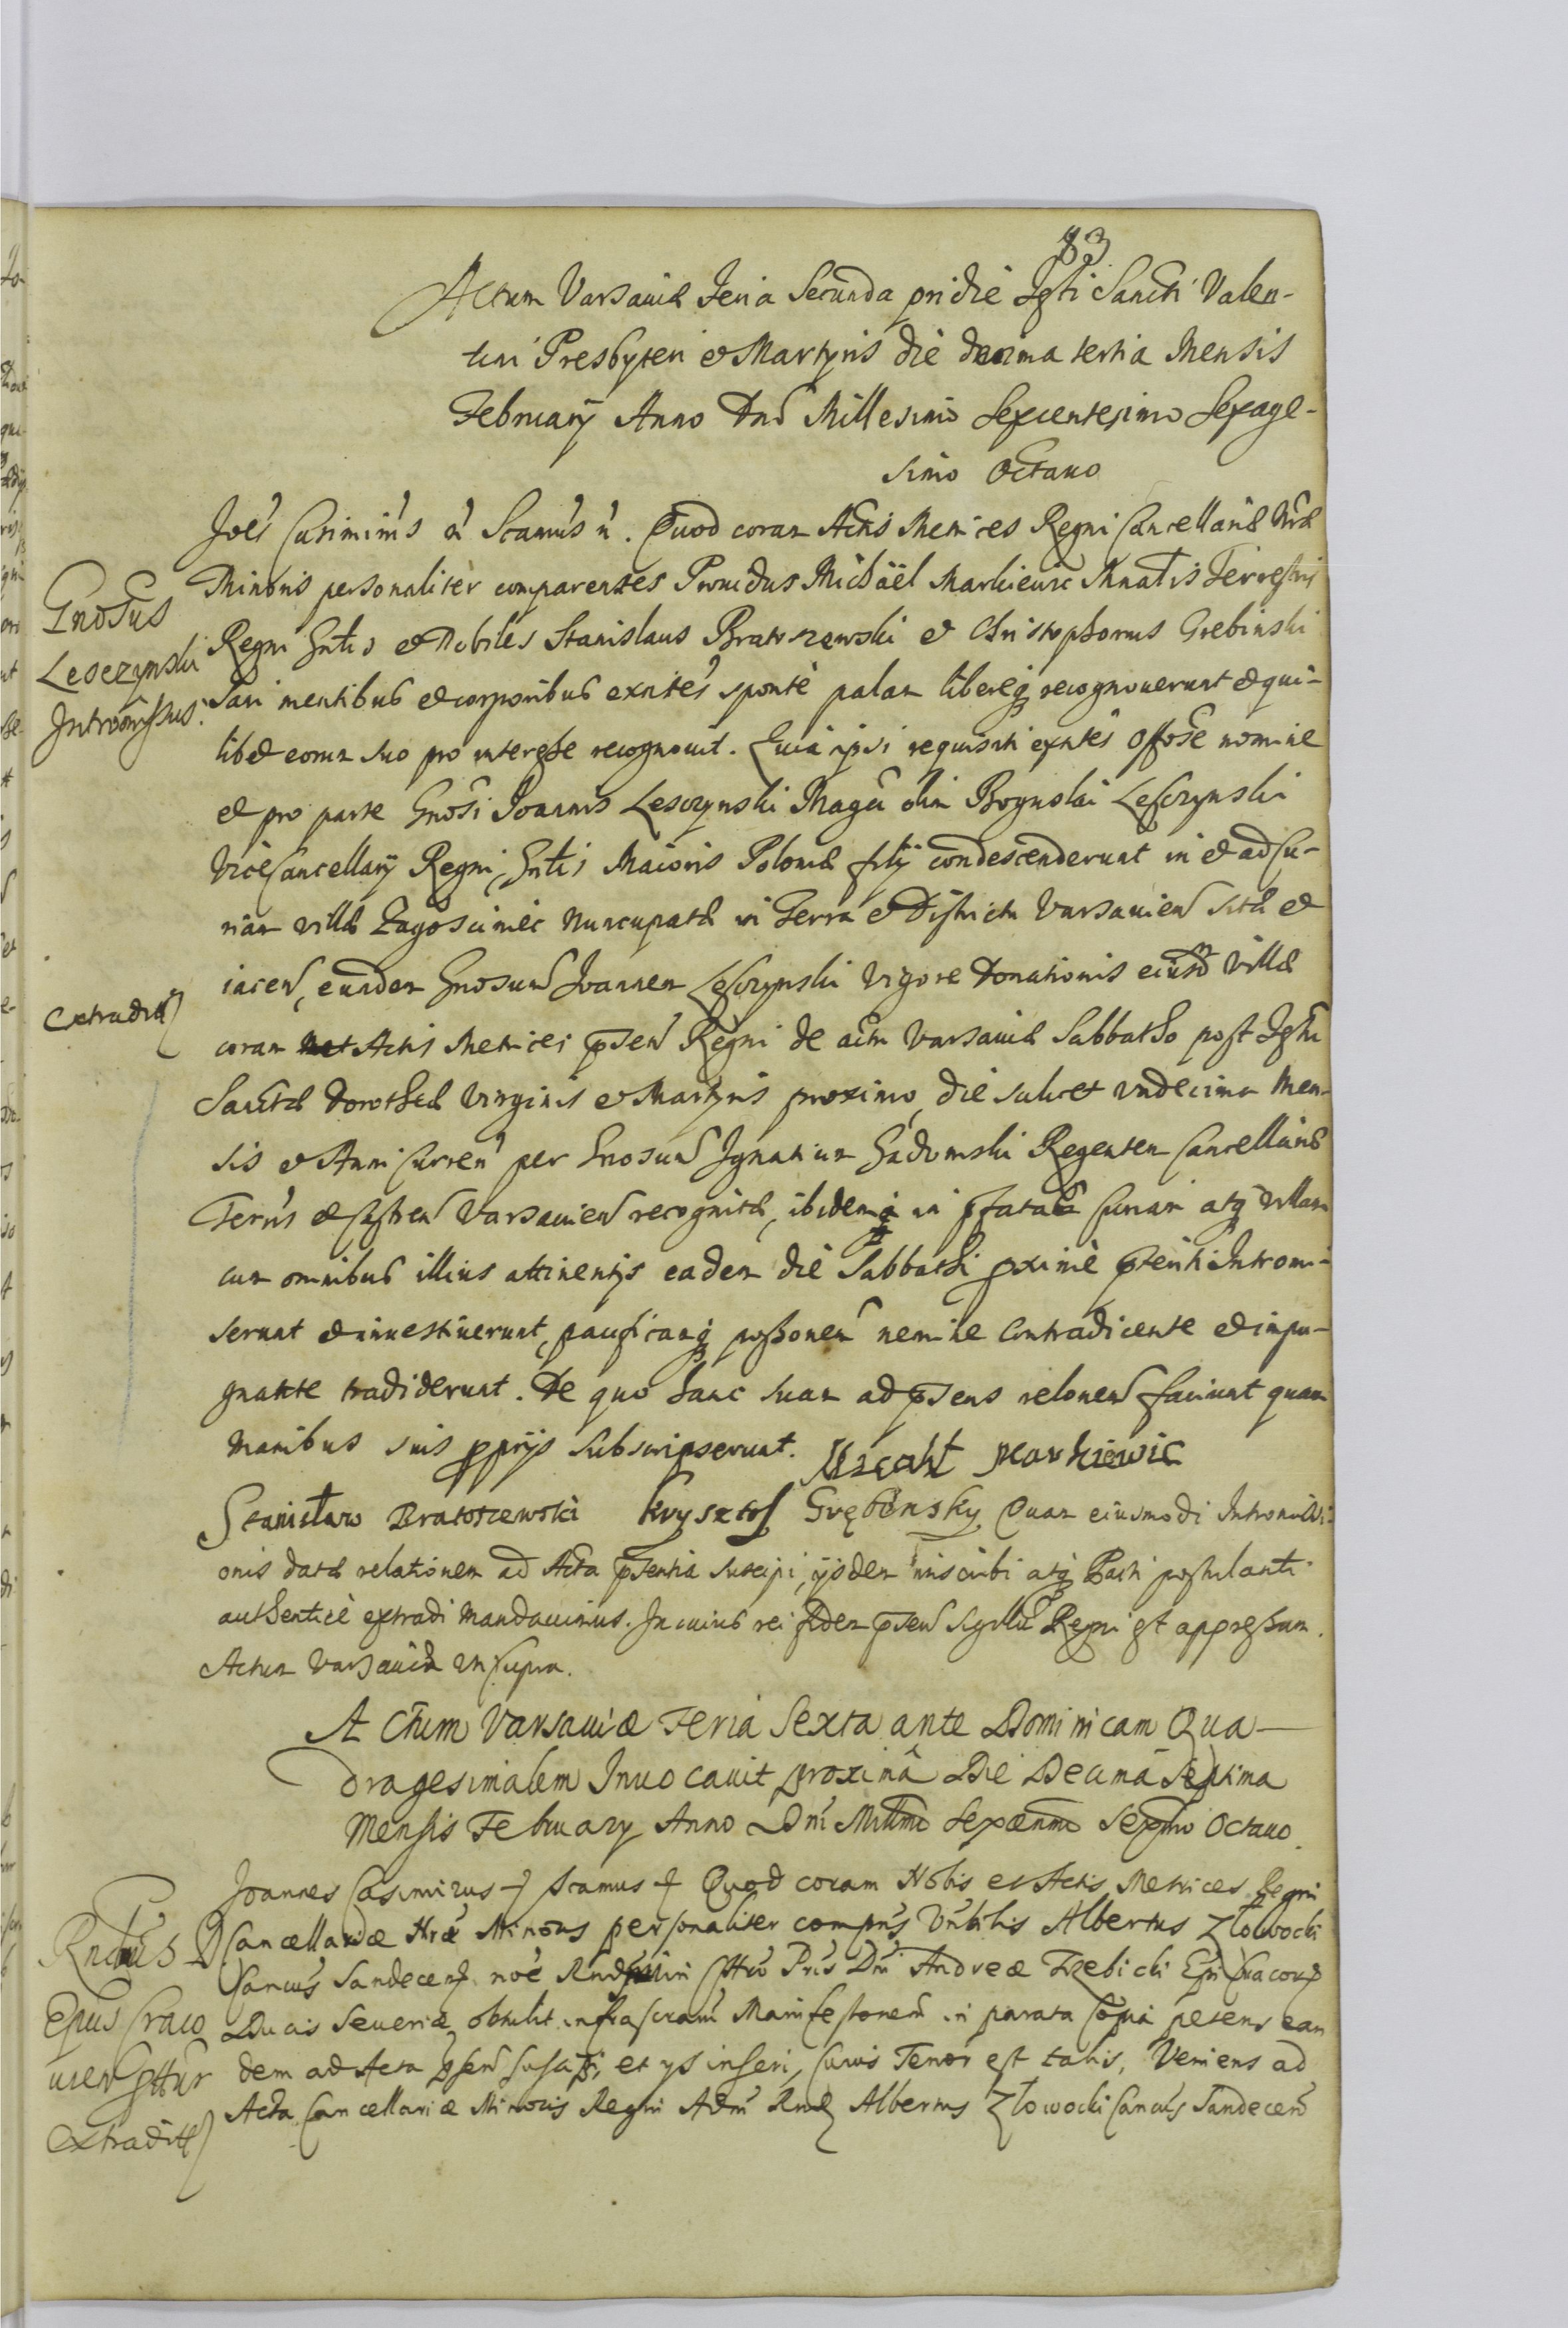 83
Actum Varsaviæ Feria Secunda pridie Festi Sancti Valen-
tini Presbyteri et Martyris die decima tertia Mensis
Februarij Anno Dni Millesimo Sexcentesimo Sexage-
simo Octauo
Joes Casimirus &c Scamus &c. Quod coram Actis Metrices Regni Cancellariæ Nræ
Minoris personaliter comparentes Prouidus Michäel Markiewic Mnrlis Terrestris
Regni Gnlis et Nobiles Stanislaus Bratoszewski et Christophorus Grebinski
Gnosus
Lesczynski
Intromissus.
Sani mentibus et corporibus exntes sponte palam libereq recognouerunt et qui-
libet eorum suo pro interesse recognouit. Quia ipsi requisiti exntes offose nomine
et pro parte Gnosi Joannis Lesczynski Magci olim Boguslai Lesczynski
ViceCancellarij Regni, Gnlis Maioris Poloniæ filij condescenderunt in et ad Cu-
riam villæ Zagoscimiec nuncupatæ in Terra et Districtu Varsauien sitæ et
iacen, eundem Gnosum Joannem Lesczynski vigore Donationis eiusd villæ
Extradit
coram Actis Metrices psen Regni de actu Varsauiæ Sabbatho post Festum
Sanctæ Dorotheæ Virginis et Martyris proximo, die scilicet vndecima Men-
sis et Anni curren per Gnosum Ignatium Gadomski Regentem Cancellariæ
Terris et Castren Varsauien recognitæ, ibidemq in pfatam Curiam atq villam
cum omnibus illius attinentijs eadem die Sabbathi pxime pteriti Intromi-
serunt et inuestiuerunt, pacificamq possonem nemine contradicente et impu-
gnante tradiderunt. De quo hanc suam ad psens relonem faciunt quam
manibus suis pprijs subscripserunt. Micahł Markiewic
Stanisław Bratoszewski Krysztof Grębinsky Quam eiusmodi Intromissi-
onis datæ relationem ad Acta psentia suscipi, ijsdem inscribi atq Parti postulanti
authenticè extradi mandauimus. In cuius rei fidem psen Sigillu Regni est appressum.
Actum Varsauiæ vt supra.
Actum Varsauiæ Feria Sexta ante Dominicam Qua-
dragesimalem Inuocauit proximâ Die Decimâ Septima
Mensis February Anno Dni Millmo Sexcenmo Sexgmo Octauo.
Joannes Casimirus &c Scamus &c Quod coram Nobis et Actis Metrices Regni
Rndus D
Epus Craco
uien
Extradit
Cancellariæ Nræ Minoris personaliter comprns Vnblilis Albertus Złowocki
Cancus Sandecen noe Rndssimi Patris Dni Andreæ Trzebicki Epi Cracou
Ducis Seueriæ obtulit infrascram Manifestonem in parata copia petens ean
dem ad Acta psen suscipi, et ijs inseri, Cuius Tenor est talis, Veniens ad
Acta Cancellariæ Minoris Regni Adm Rnd Albertus Złowocki Cancus Sandecen